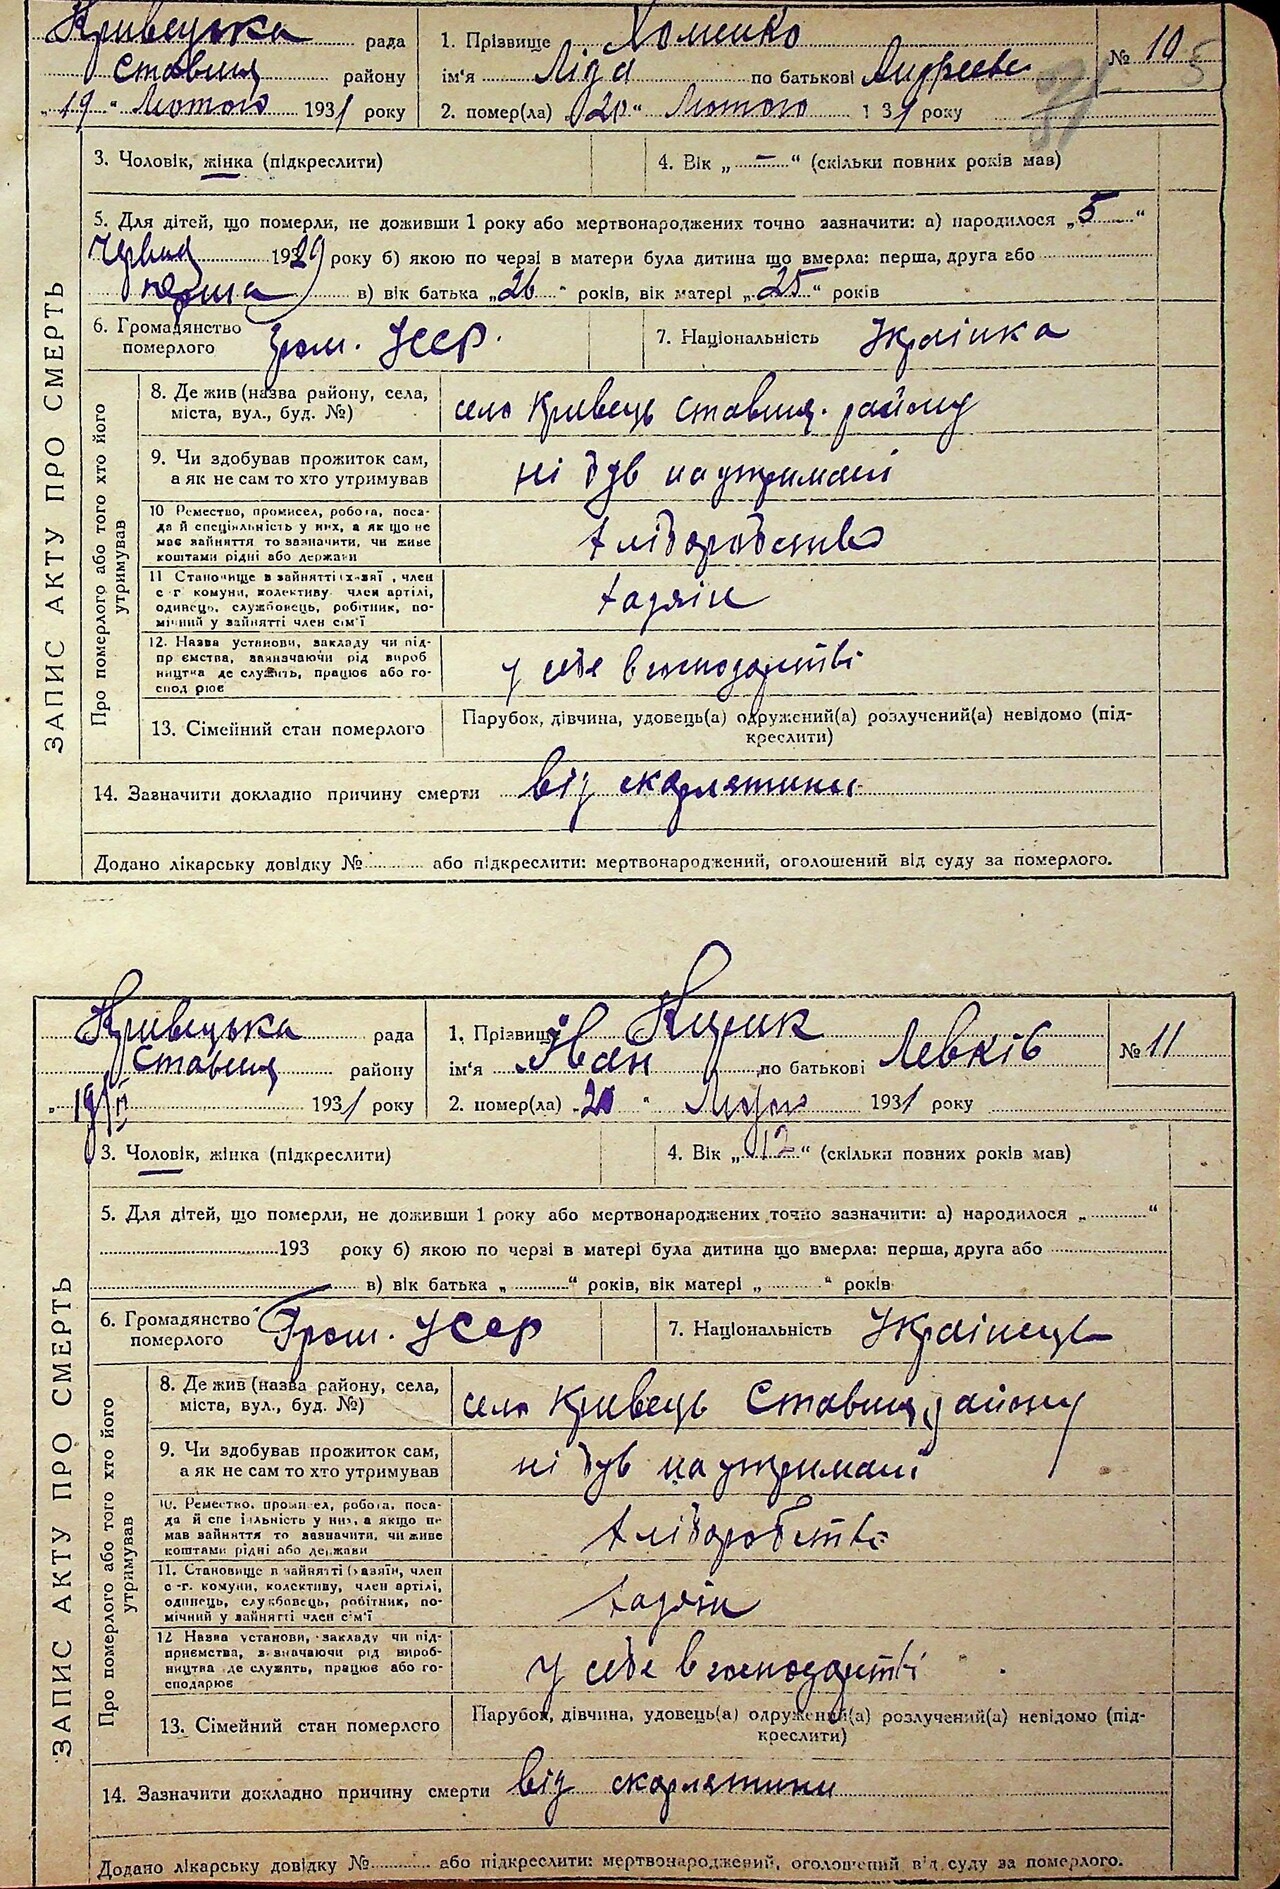 Кривецька рада
Ставищ району
„19“ Лютого 1931 року
1. Прізвище Хоменко
ім'я Ліда по батькові Андреевн
2. помер(ла) „20“ Лютого 1 31 року
№ 10
5
3. Чоловік, жінка (підкреслити)
4. Вік „ – “ (скільки повних років мав)
5. Для дітей, що померли, не доживши 1 року або мертвонароджених точно зазначити: а) народилося „5“
Червня 1929 року б) якою по черзі в матери була дитина що вмерла: перша, друга або
перша в) вік батька „26“ років, вік матері „25“ років
6. Громадянство померлого Гром. УССР.
7. Національність Українка
ЗАПИС АКТУ ПРО СМЕРТЬ
Про померлого або того хто його утримував
8. Де жив (назва району, села,
міста, вул., буд. №)
село Кривець Ставищ. району
9. Чи здобував прожиток сам,
а як не сам то хто утримував
ні був на утримані
10 Ремество, промисел, робота, поса-
да й спеціяльність у них, а якщо не
має зайняття то зазначити, чи живе
коштами рідні або держави
хліборобство
11 Становище в зайнятті (х-зяї , член
с-г комуни, колективу член артілі,
одинець, службовець, робітник, по-
мічний у зайнятті член сім'ї
хазяїн
12. Назва установи, закладу чи під-
пр ємства, зазначаючи рід вироб
ництва де служить, працює або го-
спод рює
у себе в господарстві
13. Сімейний стан померлого
Парубок, дівчина, удовець(а) одружений(а) розлучений(а) невідомо (під-
креслити)
14. Зазначити докладно причину смерти від скарлятини
Додано лікарську довідку № або підкреслити: мертвонароджений, оголошений від суду за померлого.
Кривецька рада
Ставищ району
1931 року
1. Прізвище Кирик
ім'я Іван по батькові Левків
2. помер(ла) „20“ Лютого 1931 року
№ 11
3. Чоловік, жінка (підкреслити)
4. Вік „12“ (скільки повних років мав)
5. Для дітей, що померли, не доживши 1 року або мертвонароджених точно зазначити: а) народилося „ “
193 року б) якою по черзі в матері була дитина що вмерла: перша, друга або
в) вік батька „ “ років, вік матері „ “ років
6. Громадянство померлого Гром. УССР
7. Національність Українець
ЗАПИС АКТУ ПРО СМЕРТЬ
Про померлого або того хто його утримував
8. Де жив (назва району, села,
міста, вул., буд. №)
село Кривець Ставищ. району
9. Чи здобував прожиток сам,
а як не сам то хто утримував
ні був на утримані
10. Ремество, промисел, робота, поса-
да й спе іяльність у них, а якщо не
мав зайняття то зазначити, чи живе
коштами рідні або держави
хліборобство
11. Становище в зайнятті (хазяїн, член
с-г. комуни, колективу, член артілі,
одинець, службовець, робітник, по-
мічний у зайнятті член сім'ї
хазяїн
12 Назва установи, закладу чи під-
приємства, зазначаючи рід вироб-
ництва де служить, працює або го-
сподарює
у себе в господарстві
13. Сімейний стан померлого
Парубок, дівчина, удовець(а) одружений(а) розлучений(а) невідомо (під-
креслити)
14. Зазначити докладно причину смерти від скарлятини
Додано лікарську довідку № або підкреслити: мертвонароджений, оголошений від суду за померлого.